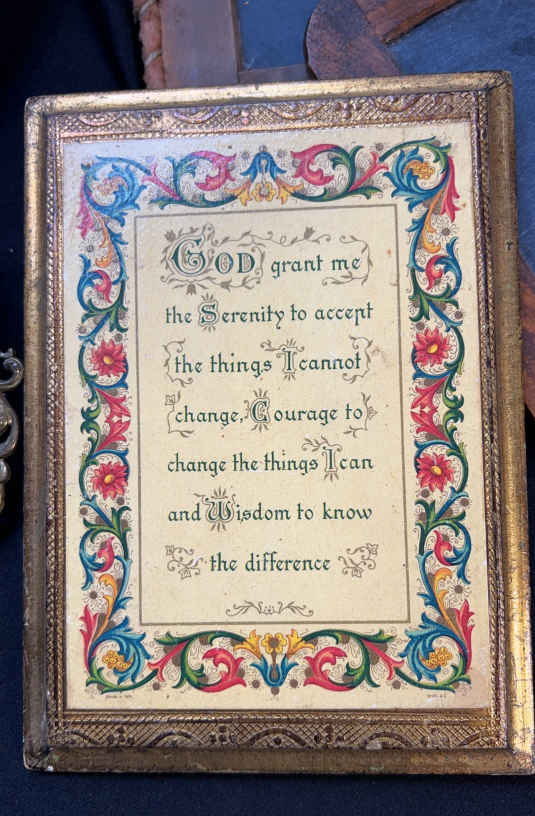 GOD grant me
the Serenity to accept
the things I cannot
change, Courage to
change the things I can
and Wisdom to know
the difference